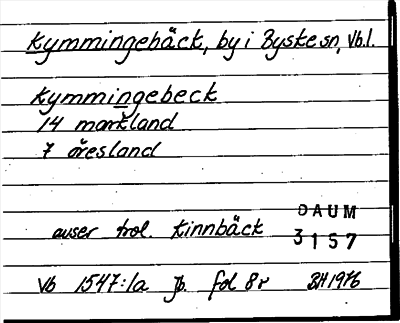 Kymmingebäck, by i Byske sn, Vb.l.
Kymmingebeck
14 markland
7 öresland
avser trol. Kinnbäck
DAUM
3157
Vb 1547:1a Jb. fol 8r BH 1976